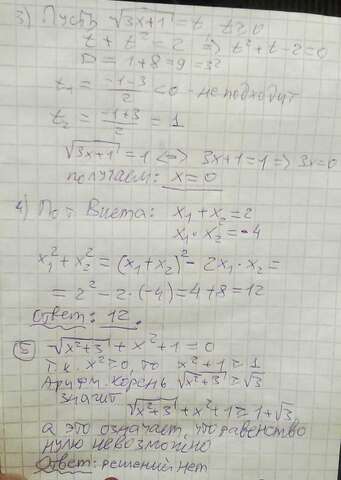 3) Пусть √3x+1 = t, t≥0
t + t² = 2 => t²+t-2=0
D = 1+8=9=3²
t₁ = (-1-3)/2 <0 - не подходит
t₂ = (-1+3)/2 = 1
√3x+1 = 1 <=> 3x+1=1 => 3x=0
получаем: x=0
4) По т Виета: x₁+x₂=2
x₁·x₂=-4
x₁²+x₂² = (x₁+x₂)² - 2x₁·x₂ =
= 2² - 2·(-4) = 4+8=12
Ответ: 12.
5) √x²+3 + x²+1=0
Т.к. x²≥0, то x²+1≥1
Арифм. корень √x²+3 ≥ √3
значит
√x²+3 + x²+1 ≥ 1+√3,
а это означает, что равенство
нулю невозможно
Ответ: решений нет